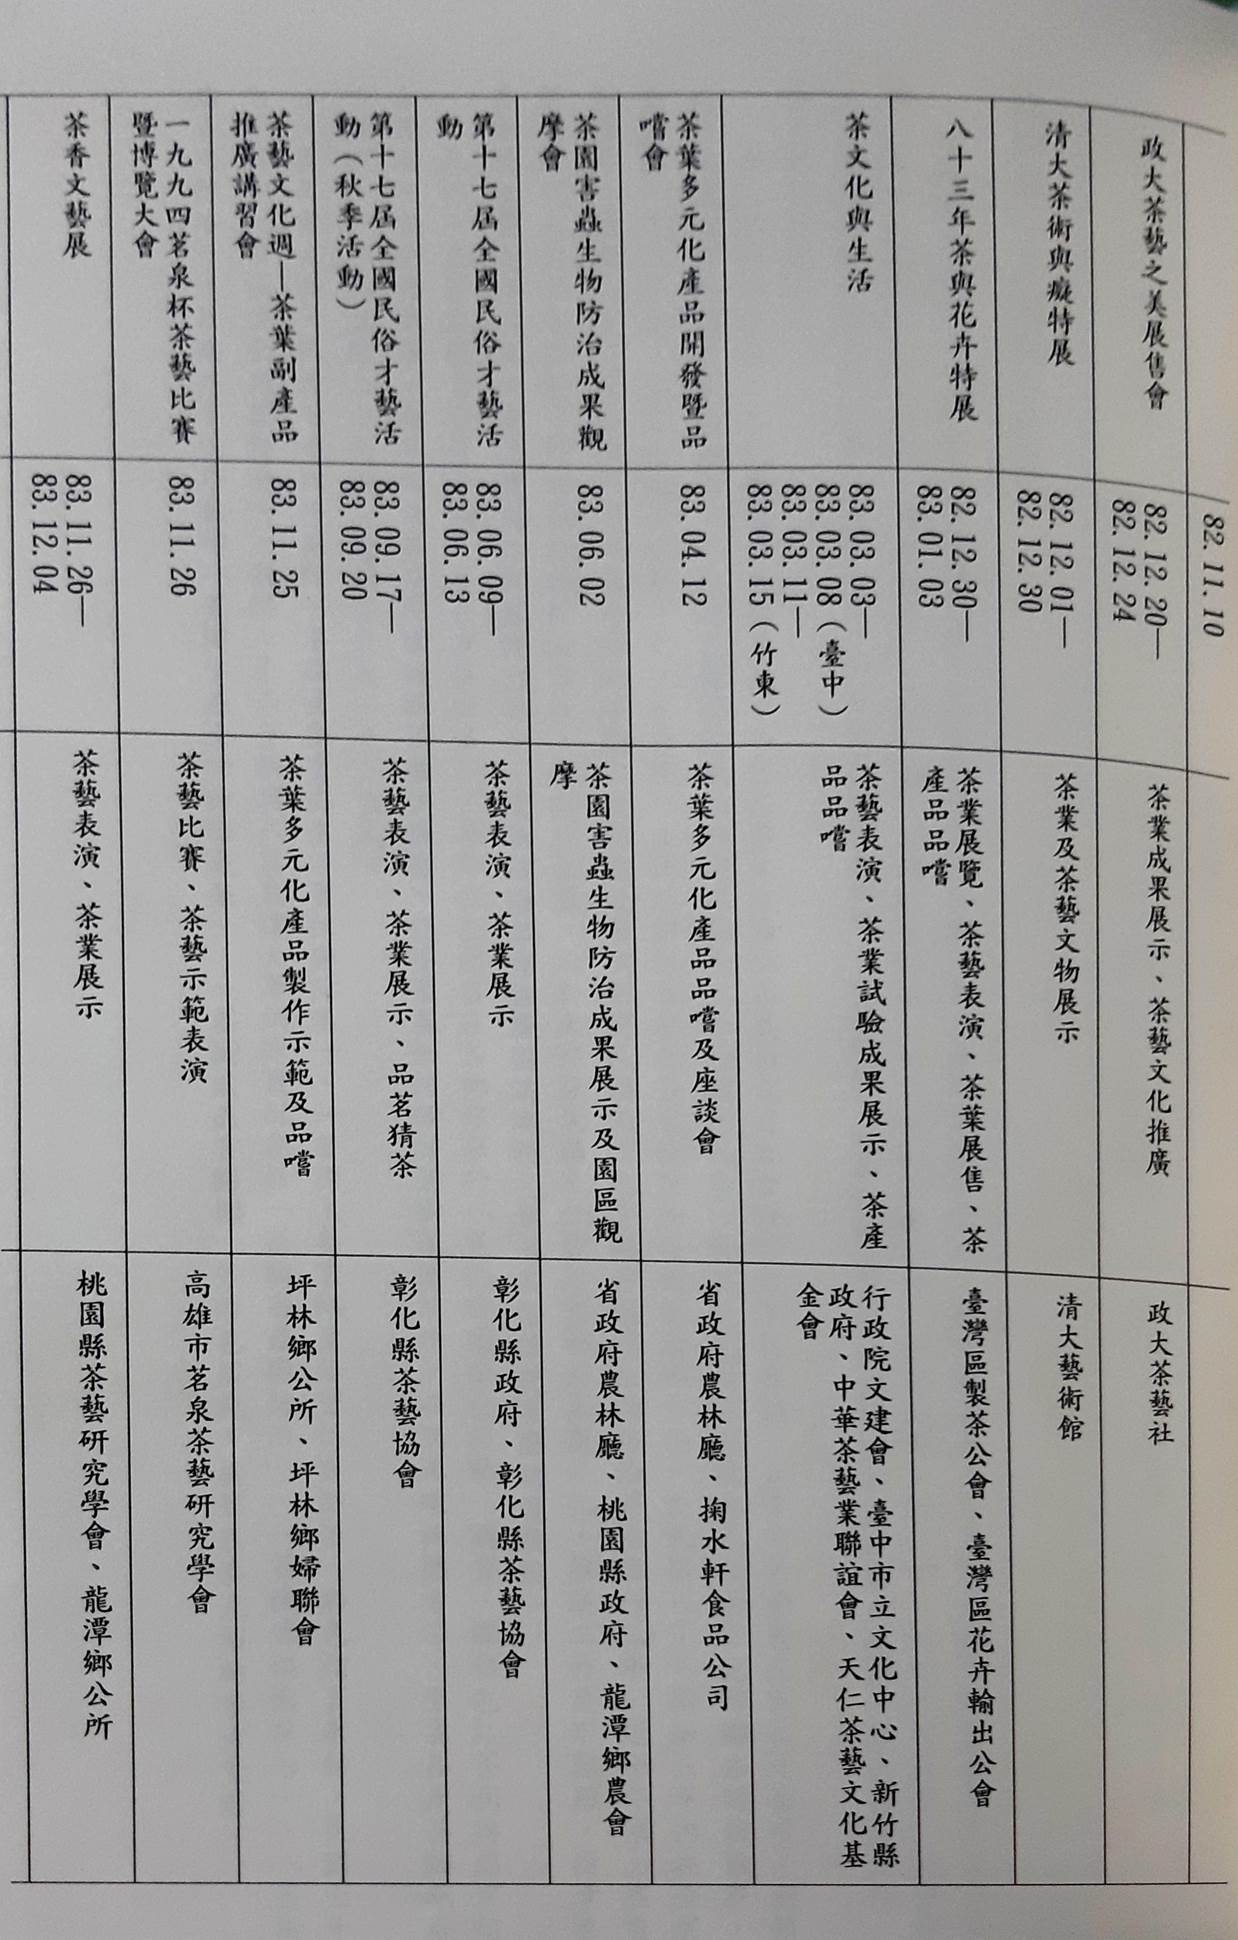 82.11.10
政大茶藝之美展售會
82.12.20—
82.12.24
茶業成果展示、茶藝文化推廣
政大茶藝社
清大茶術與癡特展
82.12.01—
82.12.30
茶業及茶藝文物展示
清大藝術館
八十三年茶與花卉特展
82.12.30—
83.01.03
茶業展覽、茶藝表演、茶葉展售、茶
產品品嚐
臺灣區製茶公會、臺灣區花卉輸出公會
茶文化與生活
83.03.03—
83.03.08(臺中)
83.03.11—
83.03.15(竹東)
茶藝表演、茶業試驗成果展示、茶產
品品嚐
行政院文建會、臺中市立文化中心、新竹縣
政府、中華茶藝業聯誼會、天仁茶藝文化基
金會
茶葉多元化產品開發暨品
嚐會
83.04.12
茶葉多元化產品品嚐及座談會
省政府農林廳、掬水軒食品公司
茶園害蟲生物防治成果觀
摩會
83.06.02
茶園害蟲生物防治成果展示及園區觀
摩
省政府農林廳、桃園縣政府、龍潭鄉農會
第十七屆全國民俗才藝活
動
83.06.09—
83.06.13
茶藝表演、茶業展示
彰化縣政府、彰化縣茶藝協會
第十七屆全國民俗才藝活
動(秋季活動)
83.09.17—
83.09.20
茶藝表演、茶業展示、品茗猜茶
彰化縣茶藝協會
茶藝文化週—茶葉副產品
推廣講習會
83.11.25
茶葉多元化產品製作示範及品嚐
坪林鄉公所、坪林鄉婦聯會
一九九四茗泉杯茶藝比賽
暨博覽大會
83.11.26
茶藝比賽、茶藝示範表演
高雄市茗泉茶藝研究學會
茶香文藝展
83.11.26—
83.12.04
茶藝表演、茶業展示
桃園縣茶藝研究學會、龍潭鄉公所